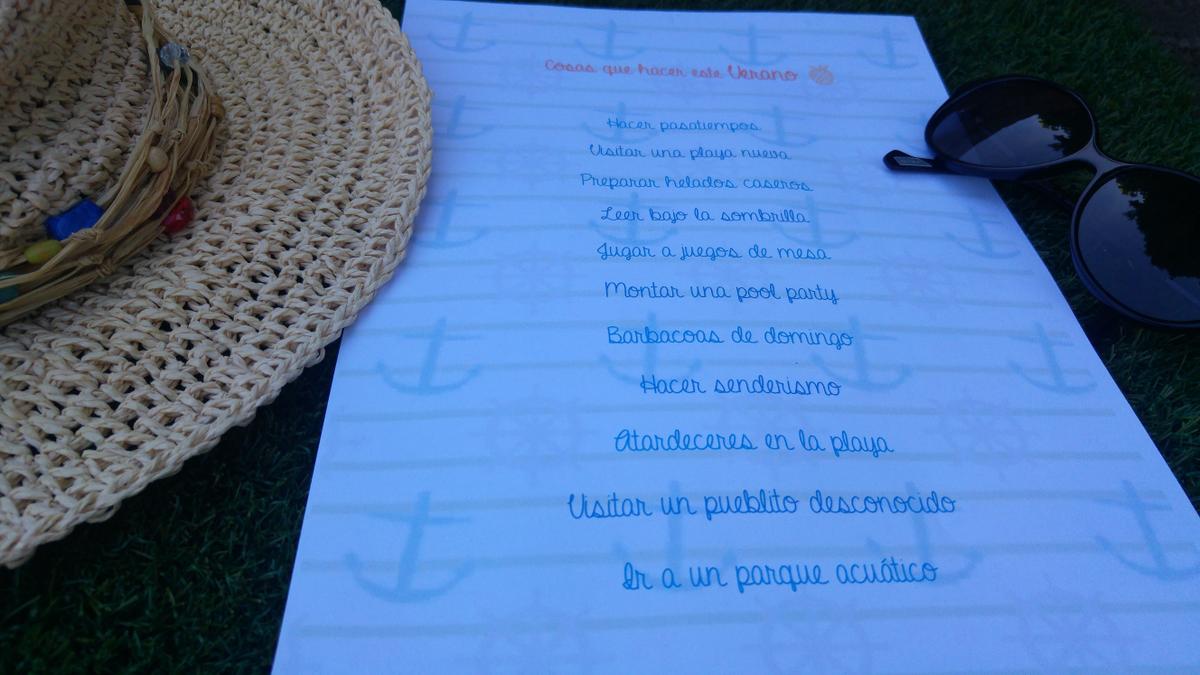 Cosas que hacer este Verano
Hacer pasatiempos
Visitar una playa nueva
Preparar helados caseros
Leer bajo la sombrilla
Jugar a juegos de mesa
Montar una pool party
Barbacoas de domingo
Hacer senderismo
Atardeceres en la playa
Visitar un pueblito desconocido
Ir a un parque acuático